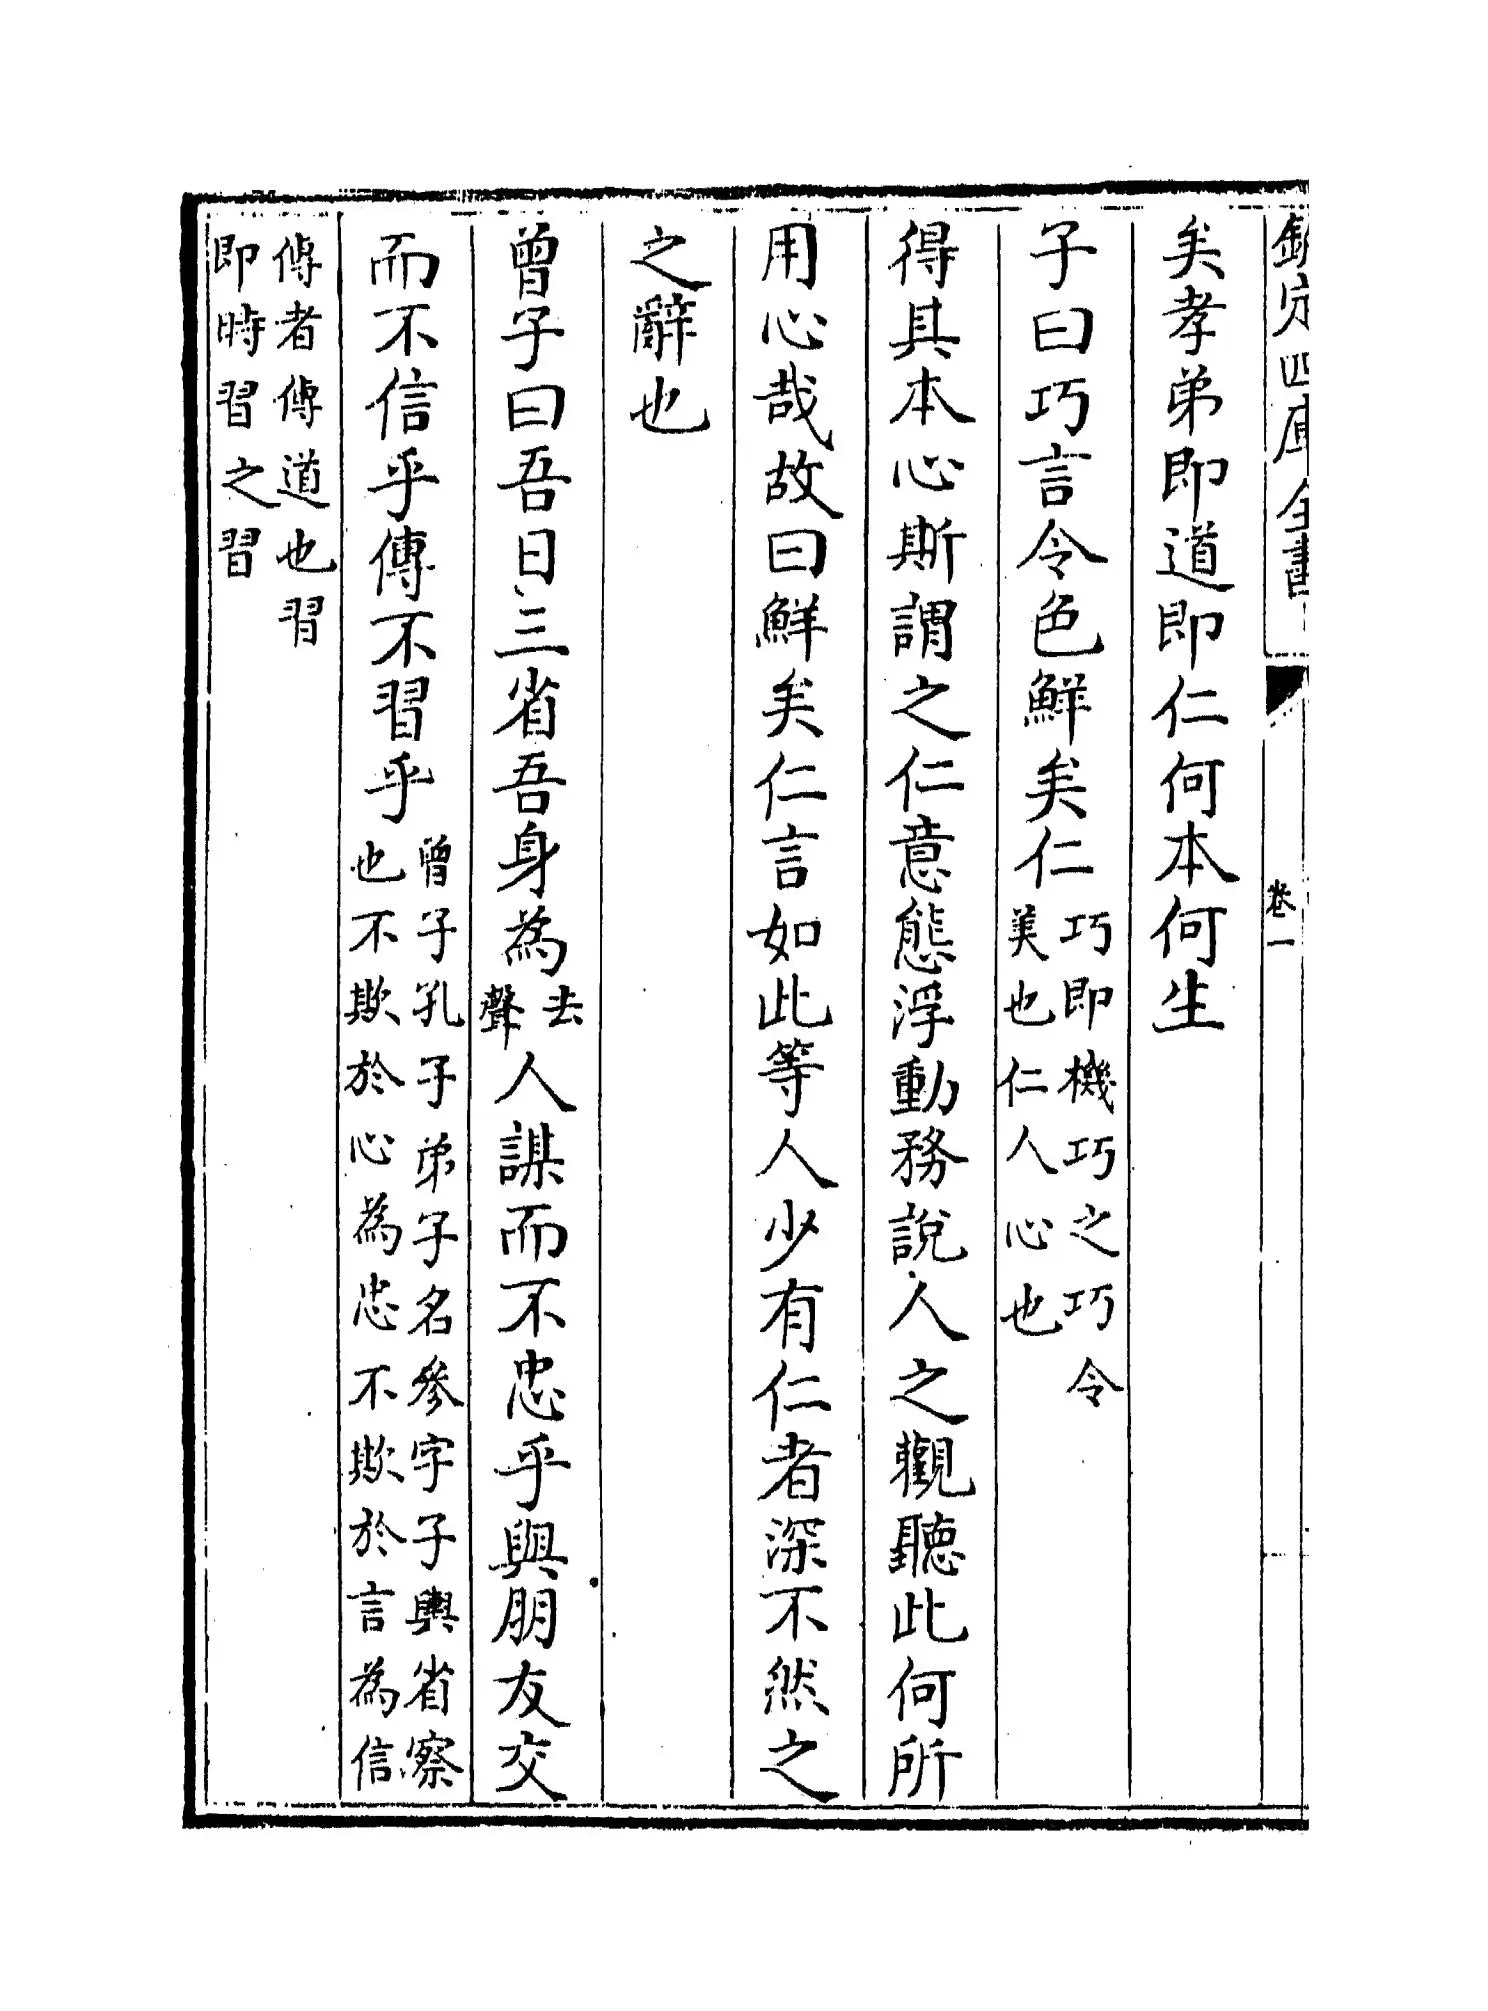 欽定四庫全書
卷一
矣孝弟即道即仁何本何生
子曰巧言令色鮮矣仁巧即機巧之巧令
美也仁人心也
得其本心斯謂之仁意態浮動務說人之觀聽此何所
用心哉故曰鮮矣仁言如此等人少有仁者深不然之
之辭也
曾子曰吾日三省吾身為去聲人謀而不忠乎與朋友交
而不信乎傳不習乎曾子孔子弟子名參字子輿省察
也不欺於心為忠不欺於言為信
傳者傳道也習
即時習之習